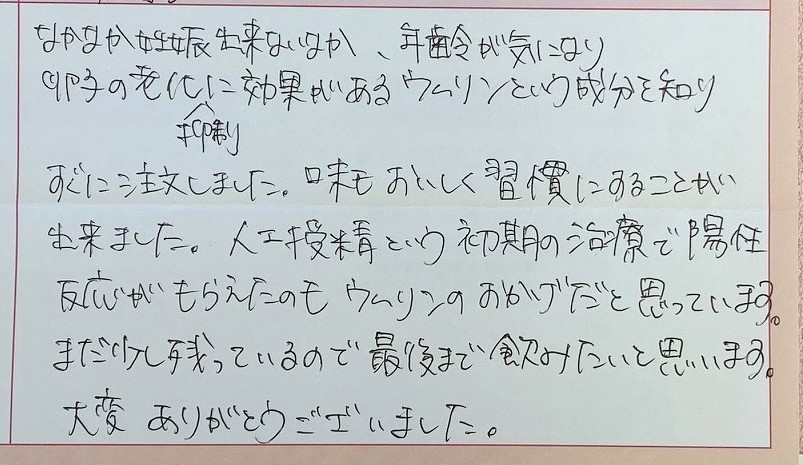 なかなか妊娠出来ないなか、年齢が気になり
卵子の老化に効果があるウムリンという成分を知り
抑制
すぐに注文しました。味もおいしく習慣にすることが
出来ました。人工授精という初期の治療で陽性
反応がもらえたのもウムリンのおかげだと思っています。
まだ少し残っているので最後まで飲みたいと思います。
大変ありがとうございました。